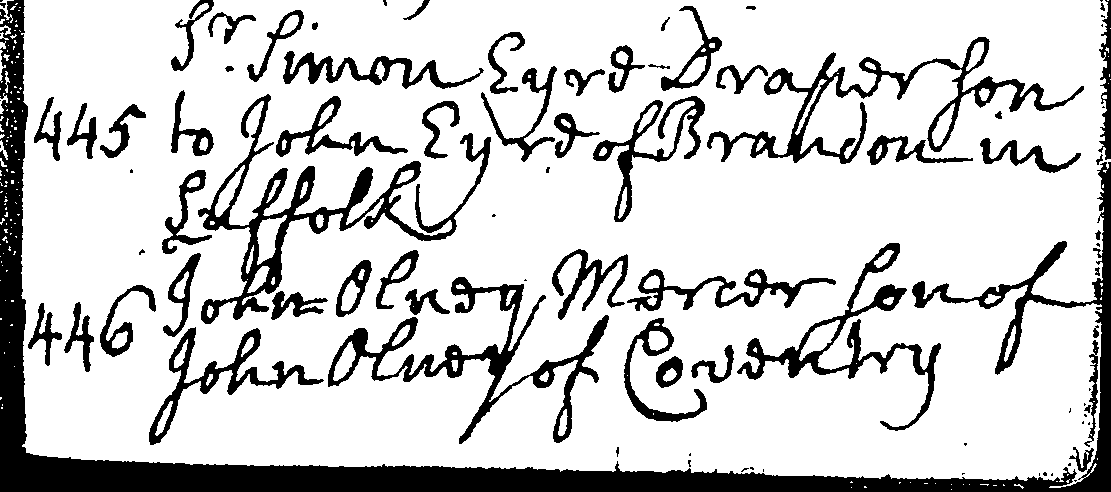 Sr. Simon Eyre Draper son
1445 to John Eyre of Brandon in
Suffolk
1446 John Olney Mercer son of
John Olney of Coventry